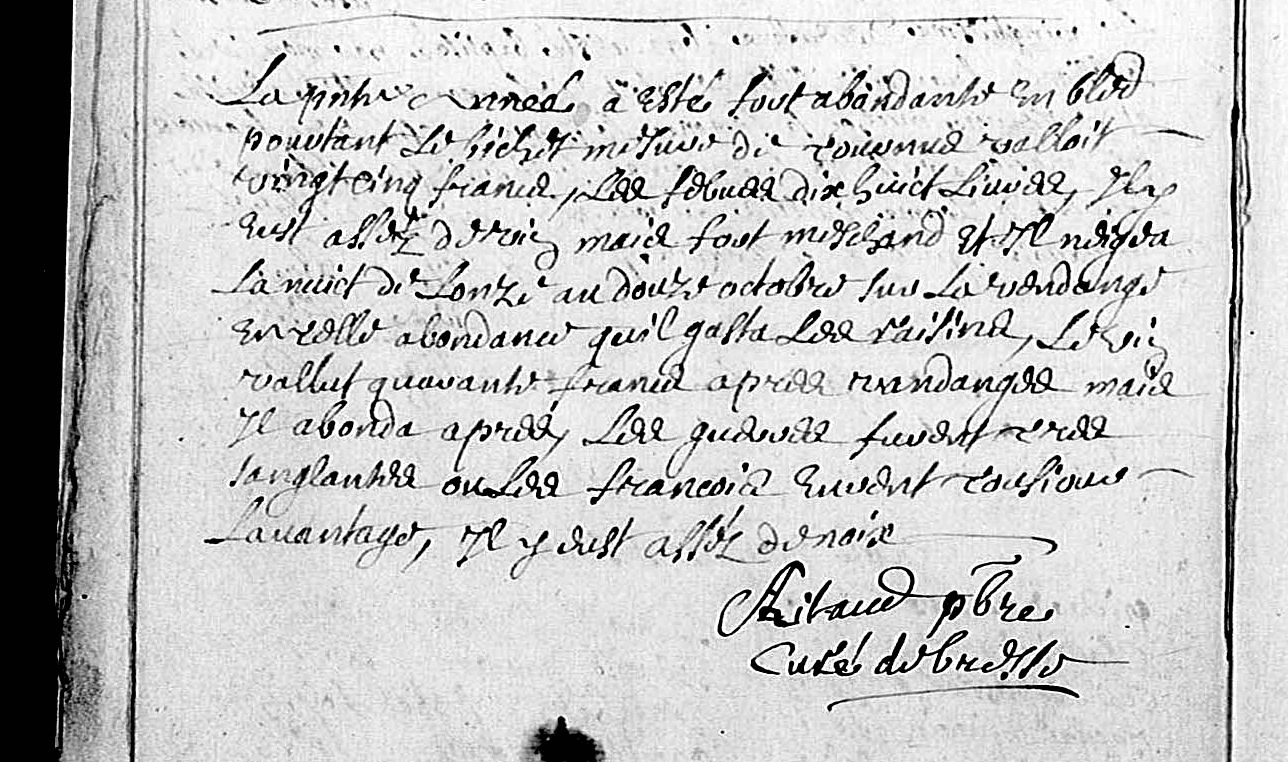 La pnte Année a esté fort abondante en bled
pourtant Le bichet mesure de tournus valloit
vingt cinq francs, Les febues dix huict Liures, Il y
eust assez de vin mais fort meschand Et Il neigea
La nuict de Lonze au douze octobre sur La vendange
en telle abondance quil gasta Les raisins, Le vin
vallut quarante francs apres vandanges mais
Il abonda apres, Les guerres furent tres
sanglantes ou Les francois eurent tousiours
Lauantage, Il y eust assez de noix
pbre
Curé de bresse